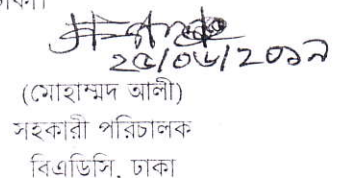 ২৫/০৬/২০১৯
(মোহাম্মদ আলী)
সহকারী পরিচালক
বিএডিসি, ঢাকা